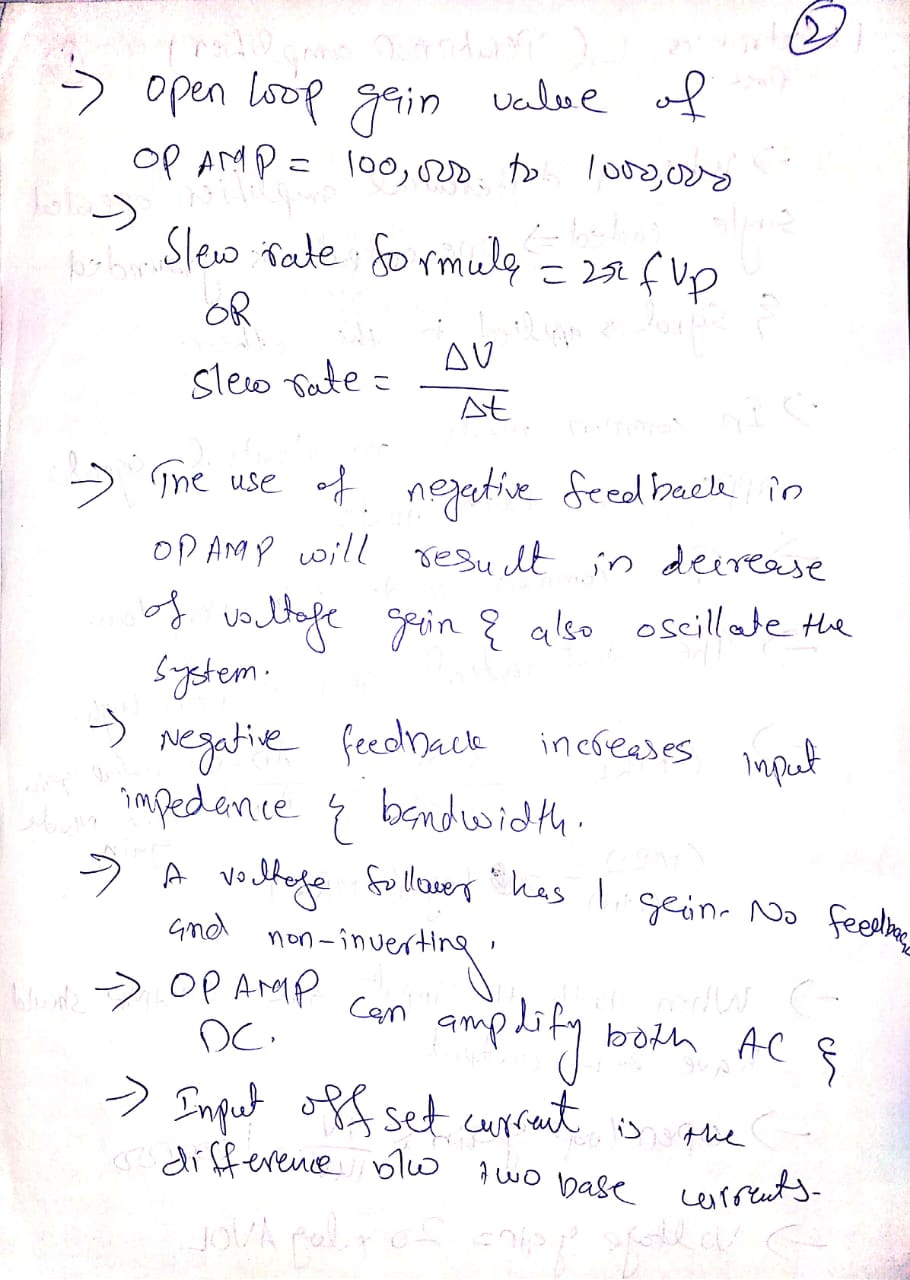 2
→ open loop gain value of
OP AMP = 100,000 to 1000,000
→
Slew rate formula = 2π f Vp
OR
Slew rate = ΔV
Δt
→ The use of negative feedback in
OP AMP will result in decrease
of voltage gain & also oscillate the
system.
→ Negative feedback increases input
impedance & bandwidth.
→ A voltage follower has 1 gain. No feedback
and non-inverting.
→ OP AMP can amplify both AC &
DC.
→ Input offset current is the
difference b/w two base currents.